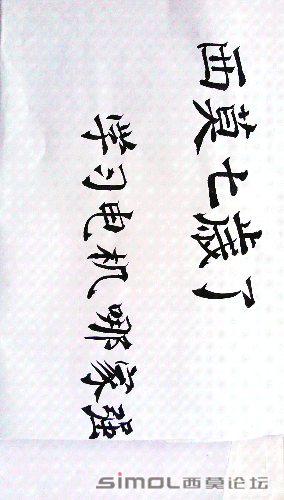 西莫七歲了
学习电机哪家强
SIMOL西莫论坛